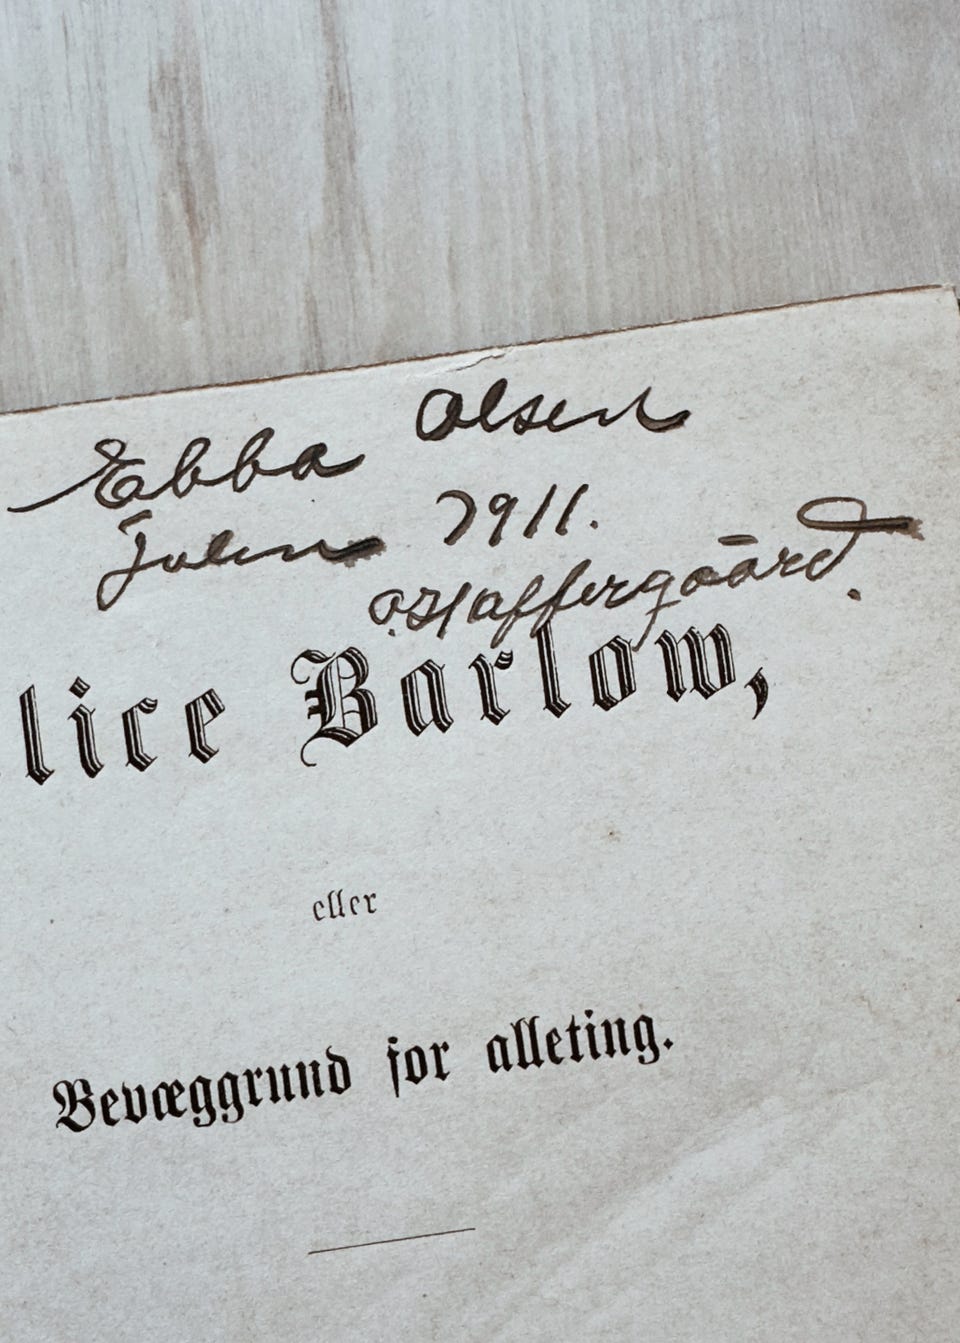 Ebba Olsen
Julen 1911.
lice Barlow,
eller
Bevæggrund for alleting.